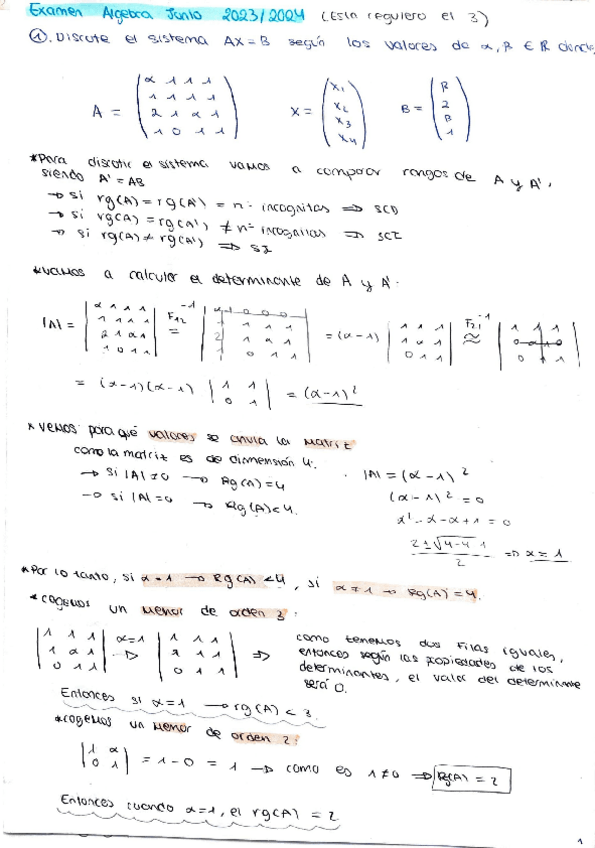 Examen Algebra Junio 2023/2024 (Esta requiero el 3)
①. Discute el sistema AX = B según los valores de α, β ∈ ℝ donde
A = ( α 1 1 1 / 1 1 1 1 / 2 1 α 1 / 1 0 1 1 ) X = ( x1 / x2 / x3 / x4 ) B = ( β / 2 / β / 1 )
*Para discutir el sistema vamos a comparar rangos de A y A',
siendo A' = AB
→ si rg(A) = rg(A') = nº incognitas ⇒ SCD
→ si rg(A) = rg(A') ≠ nº incognitas ⇒ SCI
→ si rg(A) ≠ rg(A') ⇒ SI
*vamos a calcular el determinante de A y A'.
|A| = | α 1 1 1 / 1 1 1 1 / 2 1 α 1 / 1 0 1 1 | F12 -1 = | α-1 0 0 0 / 1 1 1 1 / 2 1 α 1 / 1 0 1 1 | = (α-1) | 1 1 1 / 1 α 1 / 0 1 1 | F21 -1 ≈ | 1 1 1 / 0 α-1 0 / 0 1 1 |
= (α-1)(α-1) | 1 1 / 0 1 | = (α-1)²
* Vemos para qué valores se anula la matriz
como la matriz es de dimensión 4.
→ Si |A| ≠ 0 → Rg(A) = 4
→ Si |A| = 0 → Rg(A) < 4.
|A| = (α-1)²
(α-1)² = 0
x² - x - x + 1 = 0
2 ± √4-4·1 / 2 ⇒ x = 1
*Por lo tanto, si α = 1 → Rg(A) < 4, si α ≠ 1 → Rg(A) = 4.
*cogemos un menor de orden 3:
| 1 1 1 / 1 α 1 / 0 1 1 | α=1 → | 1 1 1 / 1 1 1 / 0 1 1 | ⇒
como tenemos dos filas iguales,
entonces según las propiedades de los
determinantes, el valor del determinante
será 0.
Entonces si α = 1 → rg(A) < 3.
*cogemos un menor de orden 2:
| 1 α / 0 1 | = 1 - 0 = 1 → como es 1 ≠ 0 ⇒ Rg(A) = 2
Entonces cuando α = 1, el rg(A) = 2
1